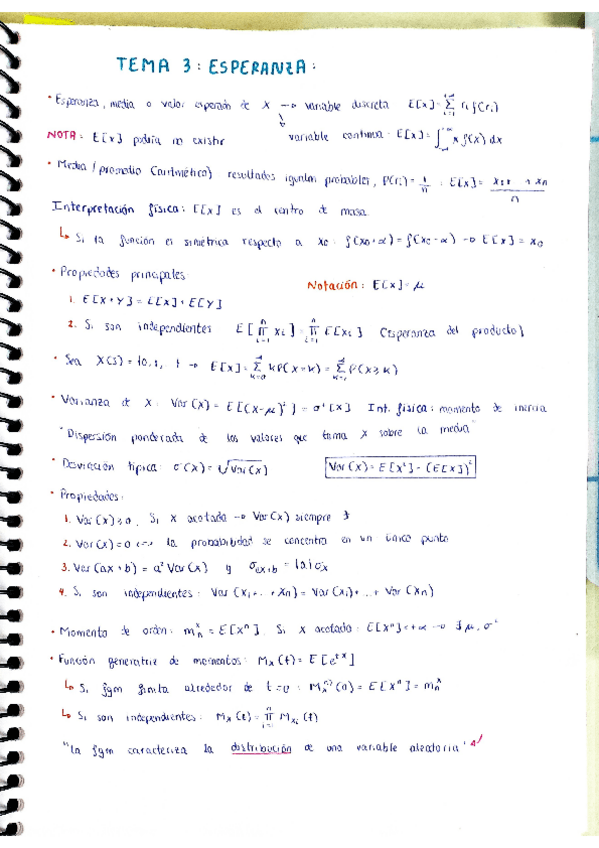 TEMA 3: ESPERANZA:
· Esperanza, media o valor esperado de X → variable discreta E[X] = Σ_{i=1}^{+∞} r_i f(r_i)
↓ variable continua - E[X] = ∫_{-∞}^{+∞} x f(x) dx
NOTA: E[X] podría no existir
· Media / promedio (aritmética) resultados igualm. probables, P(r_i) = 1/n : E[X] = x_1+ + x_n / n
Interpretación física: E[X] es el centro de masa.
↳ Si la función es simétrica respecto a x_0: f(x_0+α) = f(x_0-α) → E[X] = x_0
· Propiedades principales: Notación: E[X] = μ
1. E[X+Y] = E[X] + E[Y]
2. Si son independientes E[∏_{i=1}^{n} X_i] = ∏_{i=1}^{n} E[X_i] (esperanza del producto)
· Sea X(S) = {0,1, } → E[X] = Σ_{k=0}^{∞} kP(X=k) = Σ_{k=1}^{∞} P(X≥k)
· Varianza de X: Var(X) = E[(X-μ)²] = σ²[X] Int. física: momento de inercia
"Dispersión ponderada de los valores que toma X sobre la media"
· Desviación típica: σ(X) = √Var(X) Var(X) = E[X²] - (E[X])²
· Propiedades:
1. Var(X) ≥ 0, Si X acotada → Var(X) siempre ∃
2. Var(X) = 0 <=> la probabilidad se concentra en un único punto
3. Var(aX+b) = a² Var(X) y σ_{aX+b} = |a| σ_X
4. Si son independientes: Var(X_1+..+X_n) = Var(X_1)+..+Var(X_n)
· Momento de orden: m_n^X = E[X^n]. Si X acotado: E[X^n] < +∞ → ∃ μ, σ²
· Función generatriz de momentos: M_X(t) = E[e^{tX}]
↳ Si fgm finita alrededor de t=0: M_X^{n)}(0) = E[X^n] = m_n^X
↳ Si son independientes: M_X(t) = ∏_{i=1}^{n} M_{X_i}(t)
"La fgm caracteriza la distribución de una variable aleatoria"